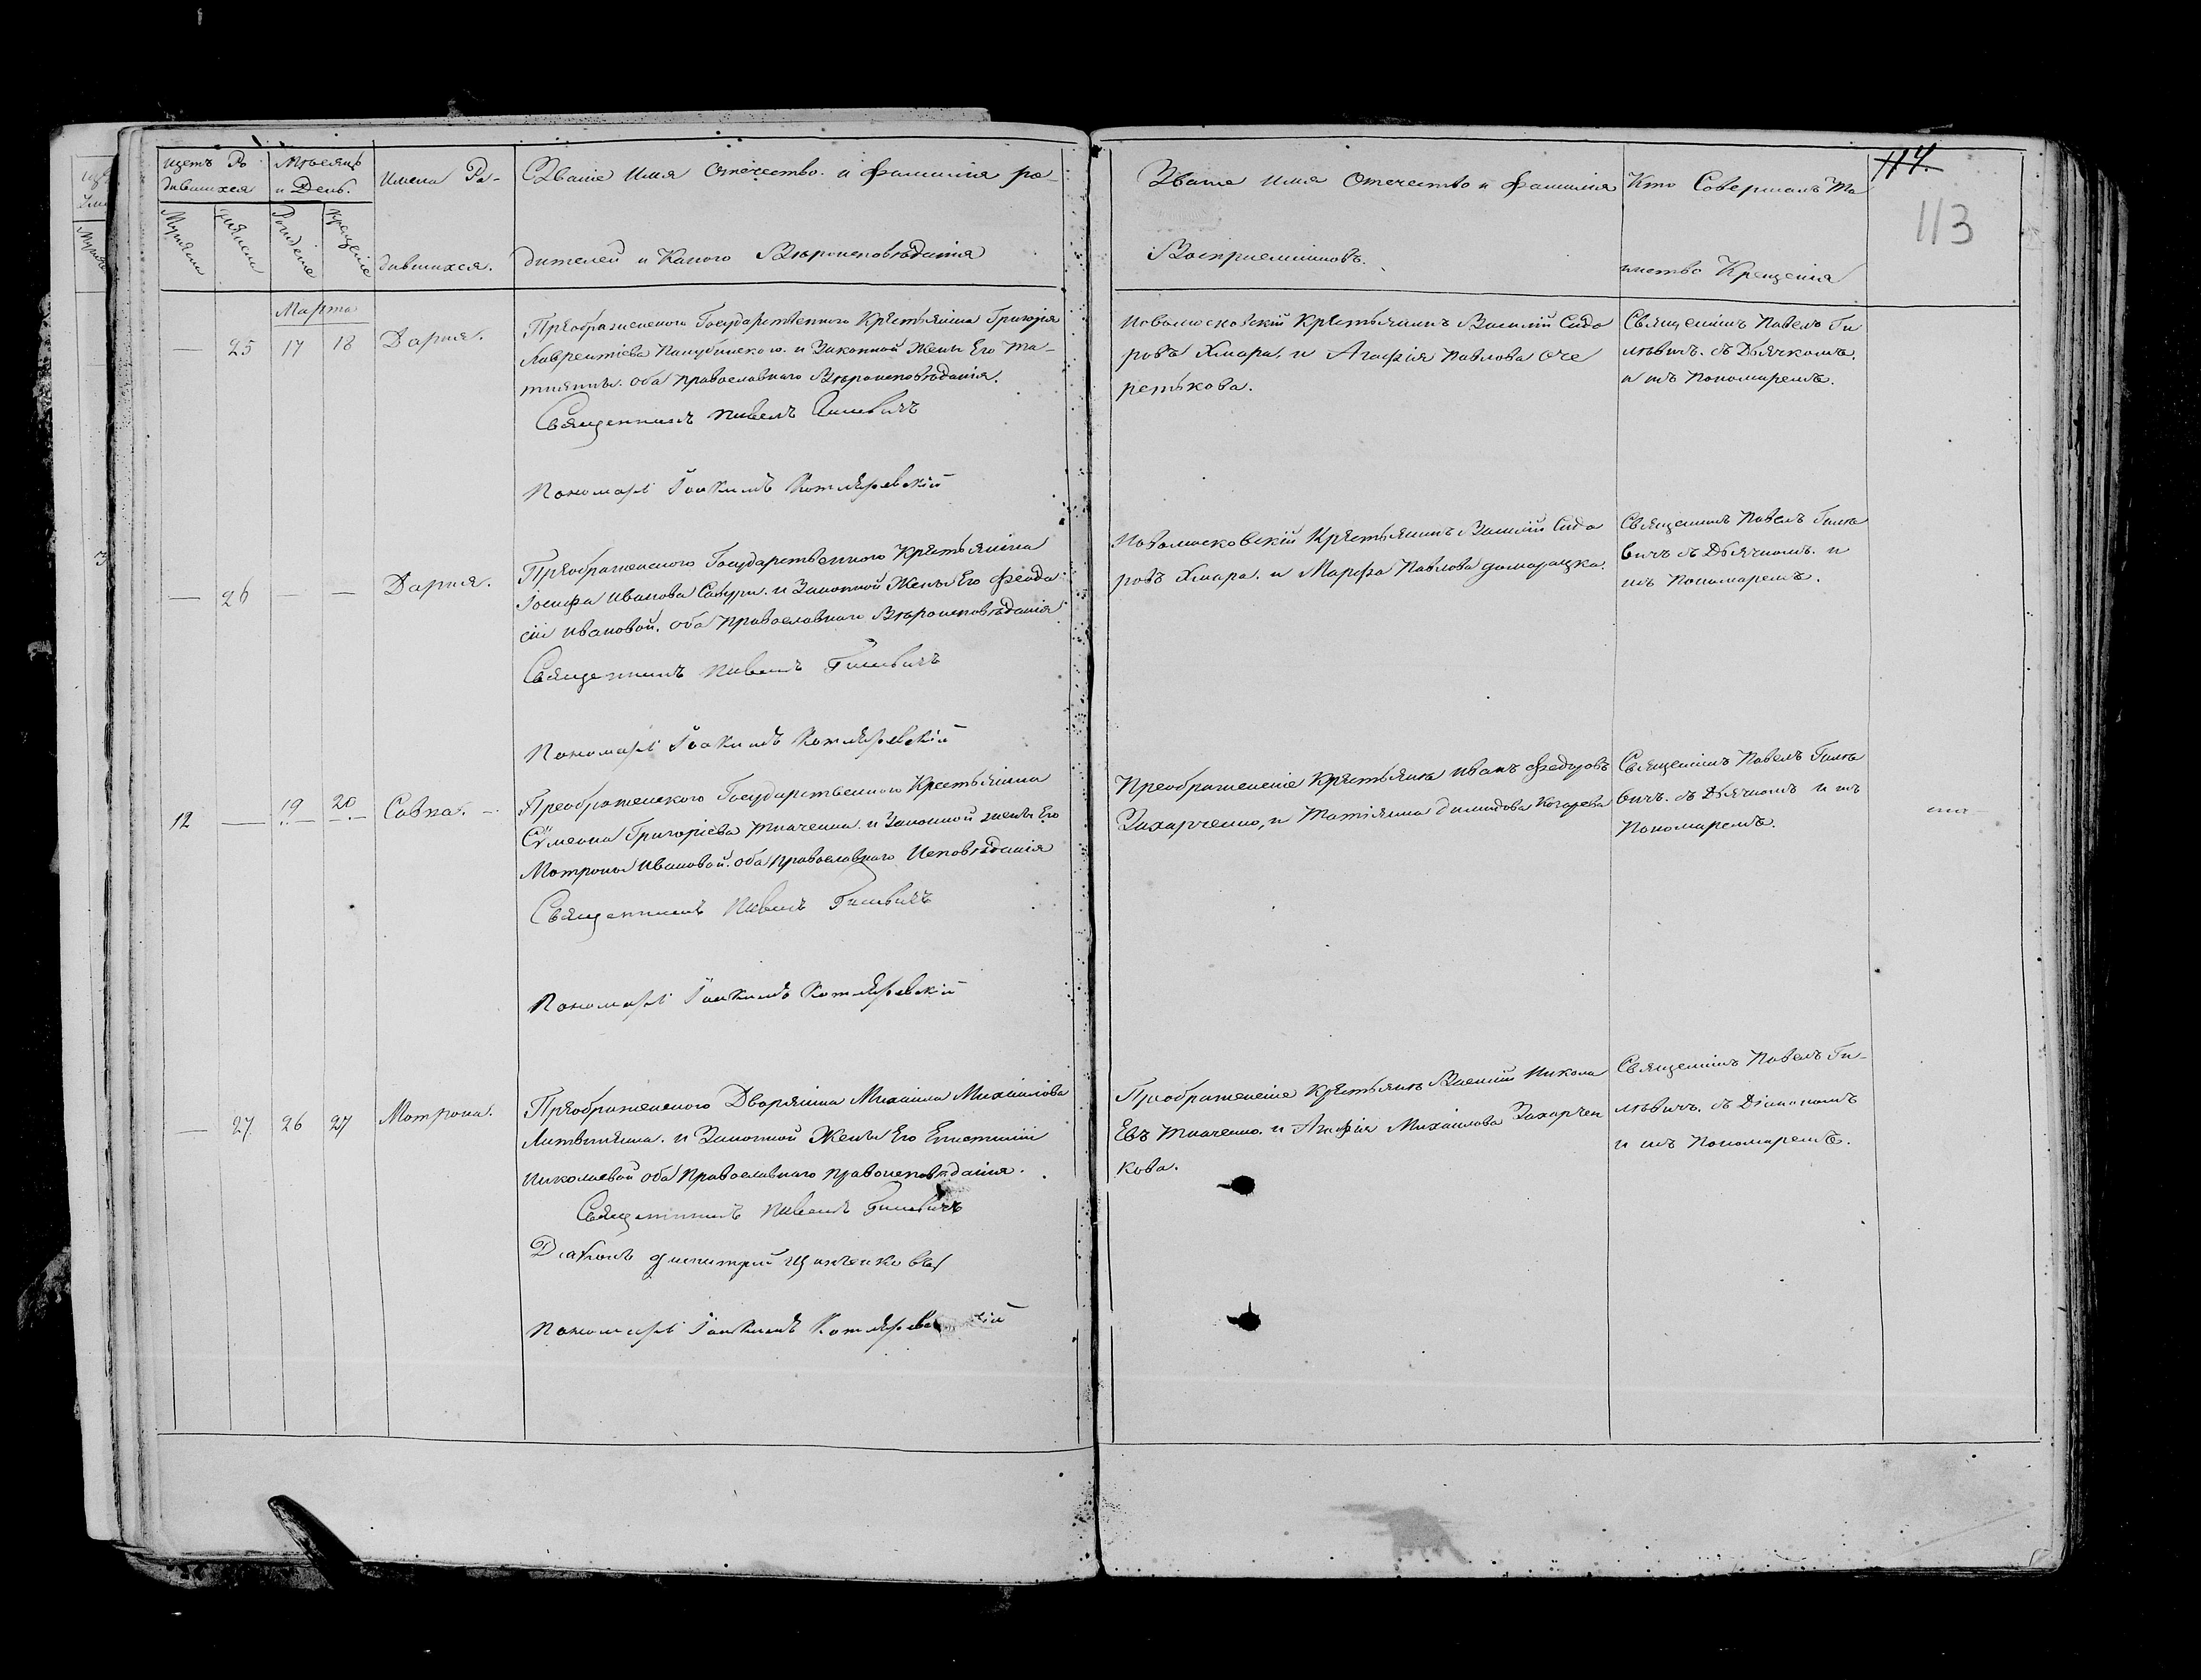 щетъ Ро
дившихся
Мѣсяцъ
и День.
Имена Ро-
дившихся.
Званіе Имя Отечество. и фамилія ро-
дителей и Какого Вѣроисповѣданія
Званіе имя Отечество и фамилія
Воспріемниковъ.
Кто Совершалъ Та
инство Крещенія
114.
113
Марта
— 25 17 18 Дарія.
Преображенского Государственного Крестьянина Григорія
Лаврентіева и Законной Жены Его Та-
тіянны. оба православнаго Вѣроисповѣданія.
Священникъ Павелъ Гилевичъ
Пономарь Іоакимъ Котляревскій
Новомосковскій Крестьянинъ Василій Сидо
ровъ Хмара. и Агафія Павлова Оче
ретькова.
Священникъ Павелъ Ги
лѣвичъ. съ Дьячкомъ.
и Пономаремъ.
— 26 — — Дарія.
Преображенского Государственного Крестьянина
Іосифа Иванова и Законной Жены Его Феодо
сіи Ивановой. оба Православнаго Вѣроисповѣданія
Священникъ Павелъ Гилевичъ
Пономарь Іоакимъ Котляревскій
Новомосковскій Крестьянинъ Василій Сидо
ровъ Хмара. и Марфа Павлова домарацка.
Священникъ Павелъ Гилѣ
вичъ съ Дьячкомъ. и
Пономаремъ.
12 — 19 20 Савва. —
Преображенского Государственного Крестьянина
Сѵмеона Григоріева Ткаченка. и Законной жены Его
Мотроны Ивановой. оба Православнаго Исповѣданія
Священникъ Павелъ Гилевичъ
Пономарь Іоакимъ Котляревскій
Преображенскіе Крестьяне Иванъ Федоровъ
Захарченко, и Татіянна
Священникъ Павелъ Гилѣ
вичъ. съ Дьячкомъ и
Пономаремъ.
— 27 26 27 Мотрона.
Преображенского Дворянина Михаила Михаилова
Литвинина. и Законной Жены Его
Николаевой оба Православнаго
Священникъ Павелъ Гилевичъ
Діаконъ димитрій
Пономарь Іоакимъ Котляревскій
Преображенскіе Крестьяне Василій Никола
Евъ Ткаченко. и Агафія Михаилова Захарчен
кова.
Священникъ Павелъ Ги-
лѣвичъ. съ Діакономъ
и Пономаремъ.